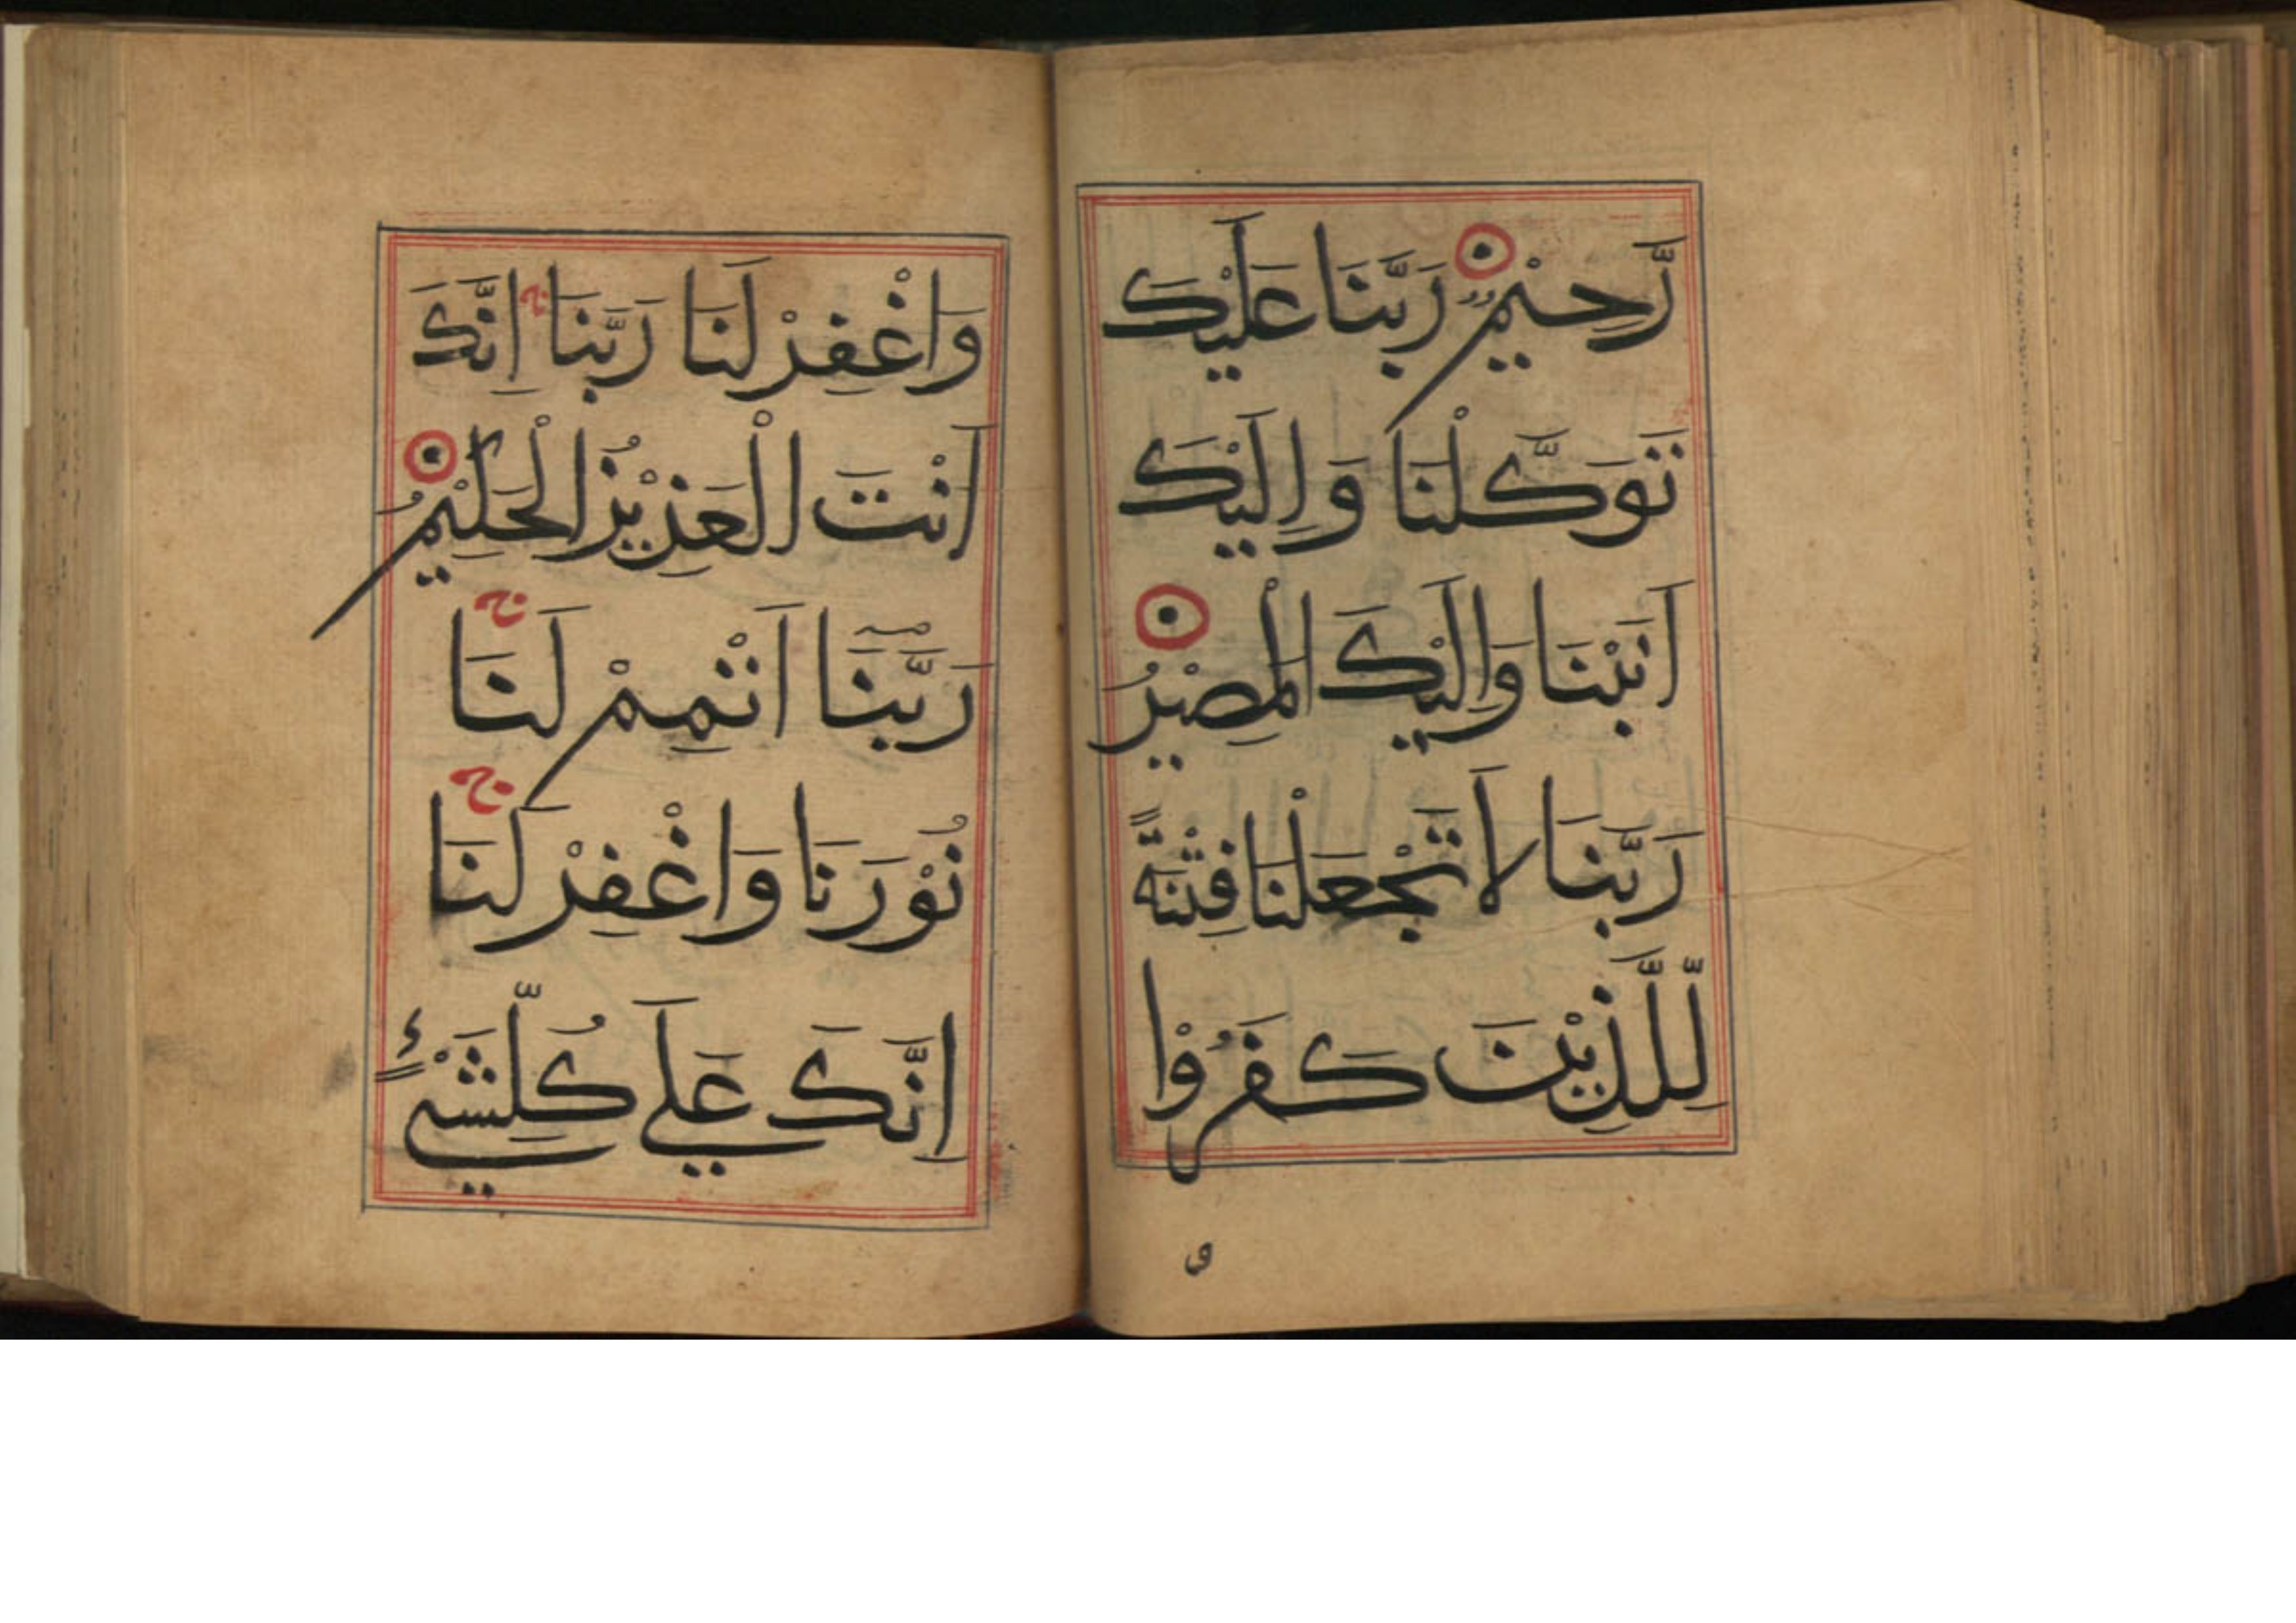 رَّحِيْمٌ رَبَّنَا عَلَيْكَ
تَوَكَّلْنَا وَاِلَيْكَ
اَنَبْنَا وَاِلَيْكَ الْمَصِيْرُ
رَبَّنَا لَا تَجْعَلْنَا فِتْنَةً
لِّلَّذِيْنَ كَفَرُوْا
و
وَاغْفِرْ لَنَا رَبَّنَا ج اِنَّكَ
اَنْتَ الْعَزِيْزُ الْحَكِيْمُ
رَبَّنَآ اَتْمِمْ لَنَا ج
نُوْرَنَا وَاغْفِرْ لَنَا ج
اِنَّكَ عَلَي كُلِّ شَيْءٍ